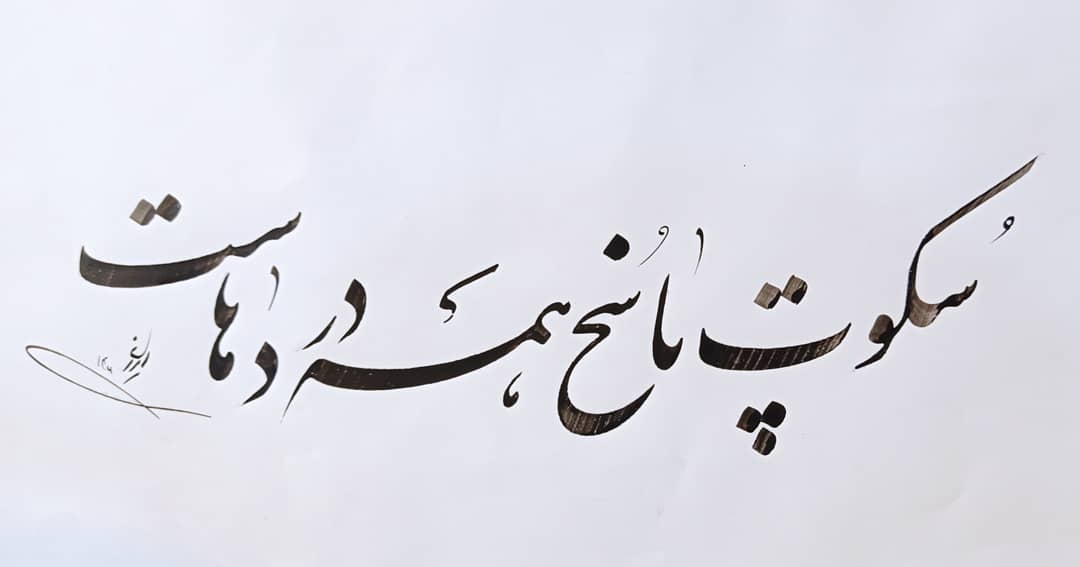 سکوت پاسخ همهٔ دردهاست